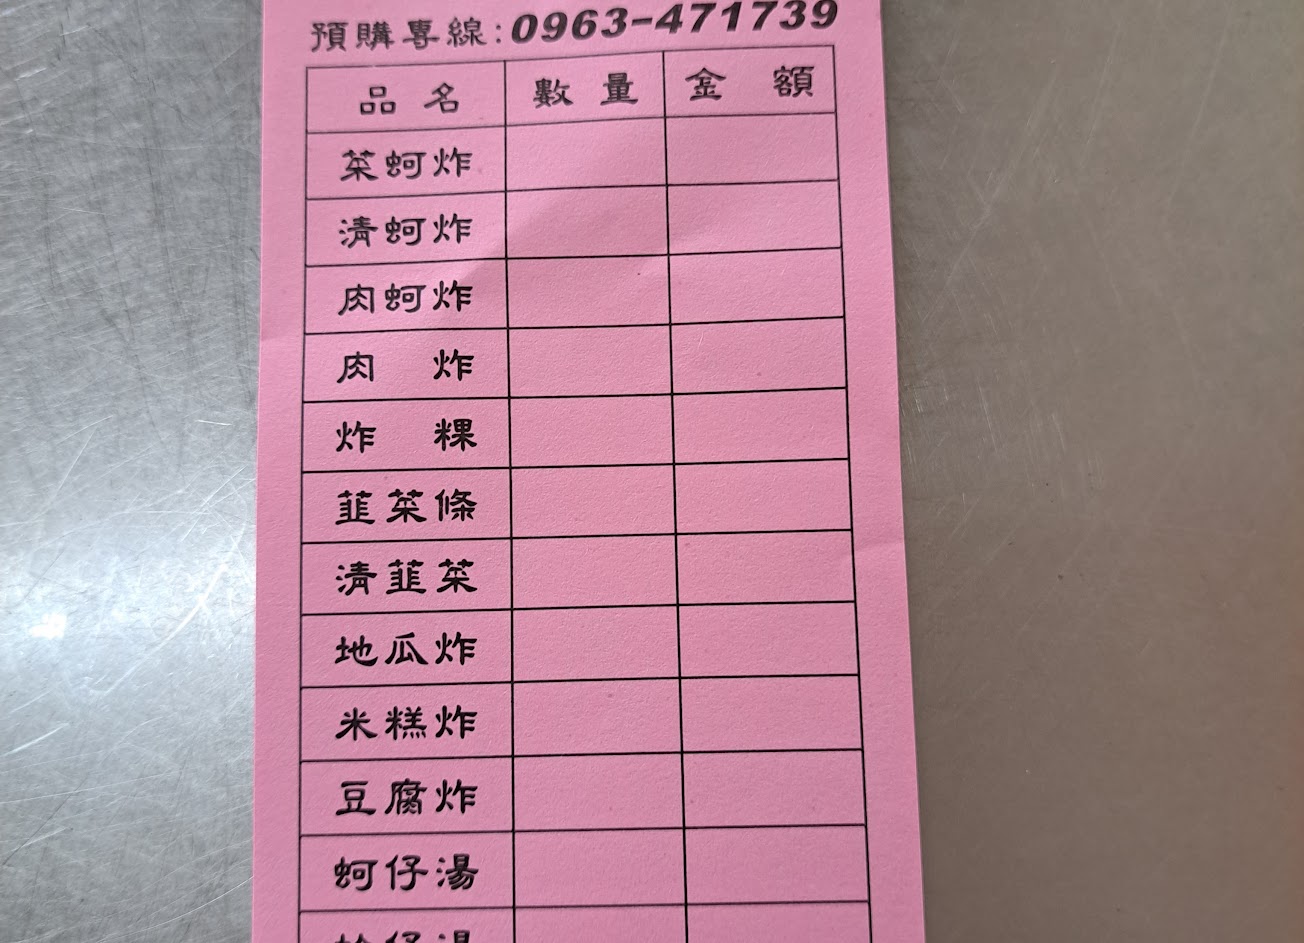 預購專線:0963-471739
品名 數量 金額
菜蚵炸
清蚵炸
肉蚵炸
肉 炸
炸 粿
韮菜條
清韮菜
地瓜炸
米糕炸
豆腐炸
蚵仔湯
仔湯